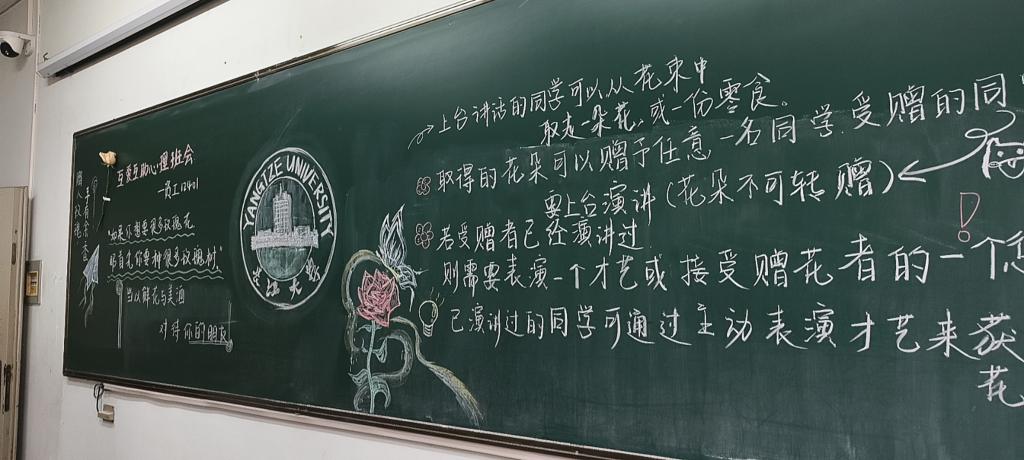 赠人玫瑰
手有余香
互爱互助心理班会
—员工12401
"如果你想要很多玫瑰花
那自先你要种很多玫瑰树."
当以鲜花与美酒
对待你的朋友
YANGTZE UNIVERSITY
长江大学
上台讲话的同学可以从花束中
取走一朵花,或一份零食。
取得的花朵可以赠予任意一名同学.受赠的同
要上台演讲(花朵不可转赠)
若受赠者已经演讲过
则需要表演一个才艺或接受赠花者的一个
!
已演讲过的同学可通过主动表演才艺来获
花